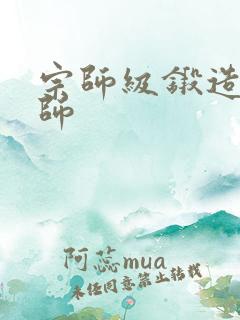 宗師級鍛造
師
阿蕊mua
未经同意禁止转载